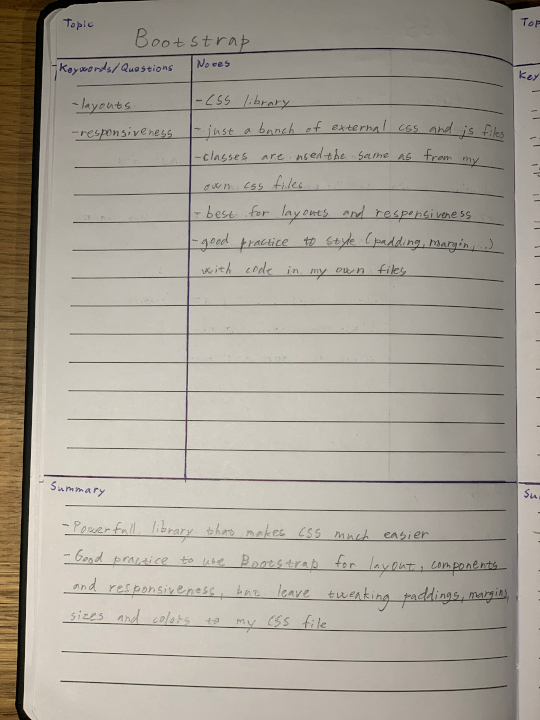 Topic
Bootstrap
Keywords/Questions
Notes
-layouts
-responsiveness
-CSS library
-just a bunch of external css and js files
-classes are used the same as from my
own css files
-best for layouts and responsiveness
-good practice to style (padding, margin,...)
with code in my own files
Summary
-Powerfull library that makes CSS much easier
-Good practice to use Bootstrap for layout, components
and responsiveness, but leave tweaking paddings, margins,
sizes and colors to my CSS file
Top
Key
Su